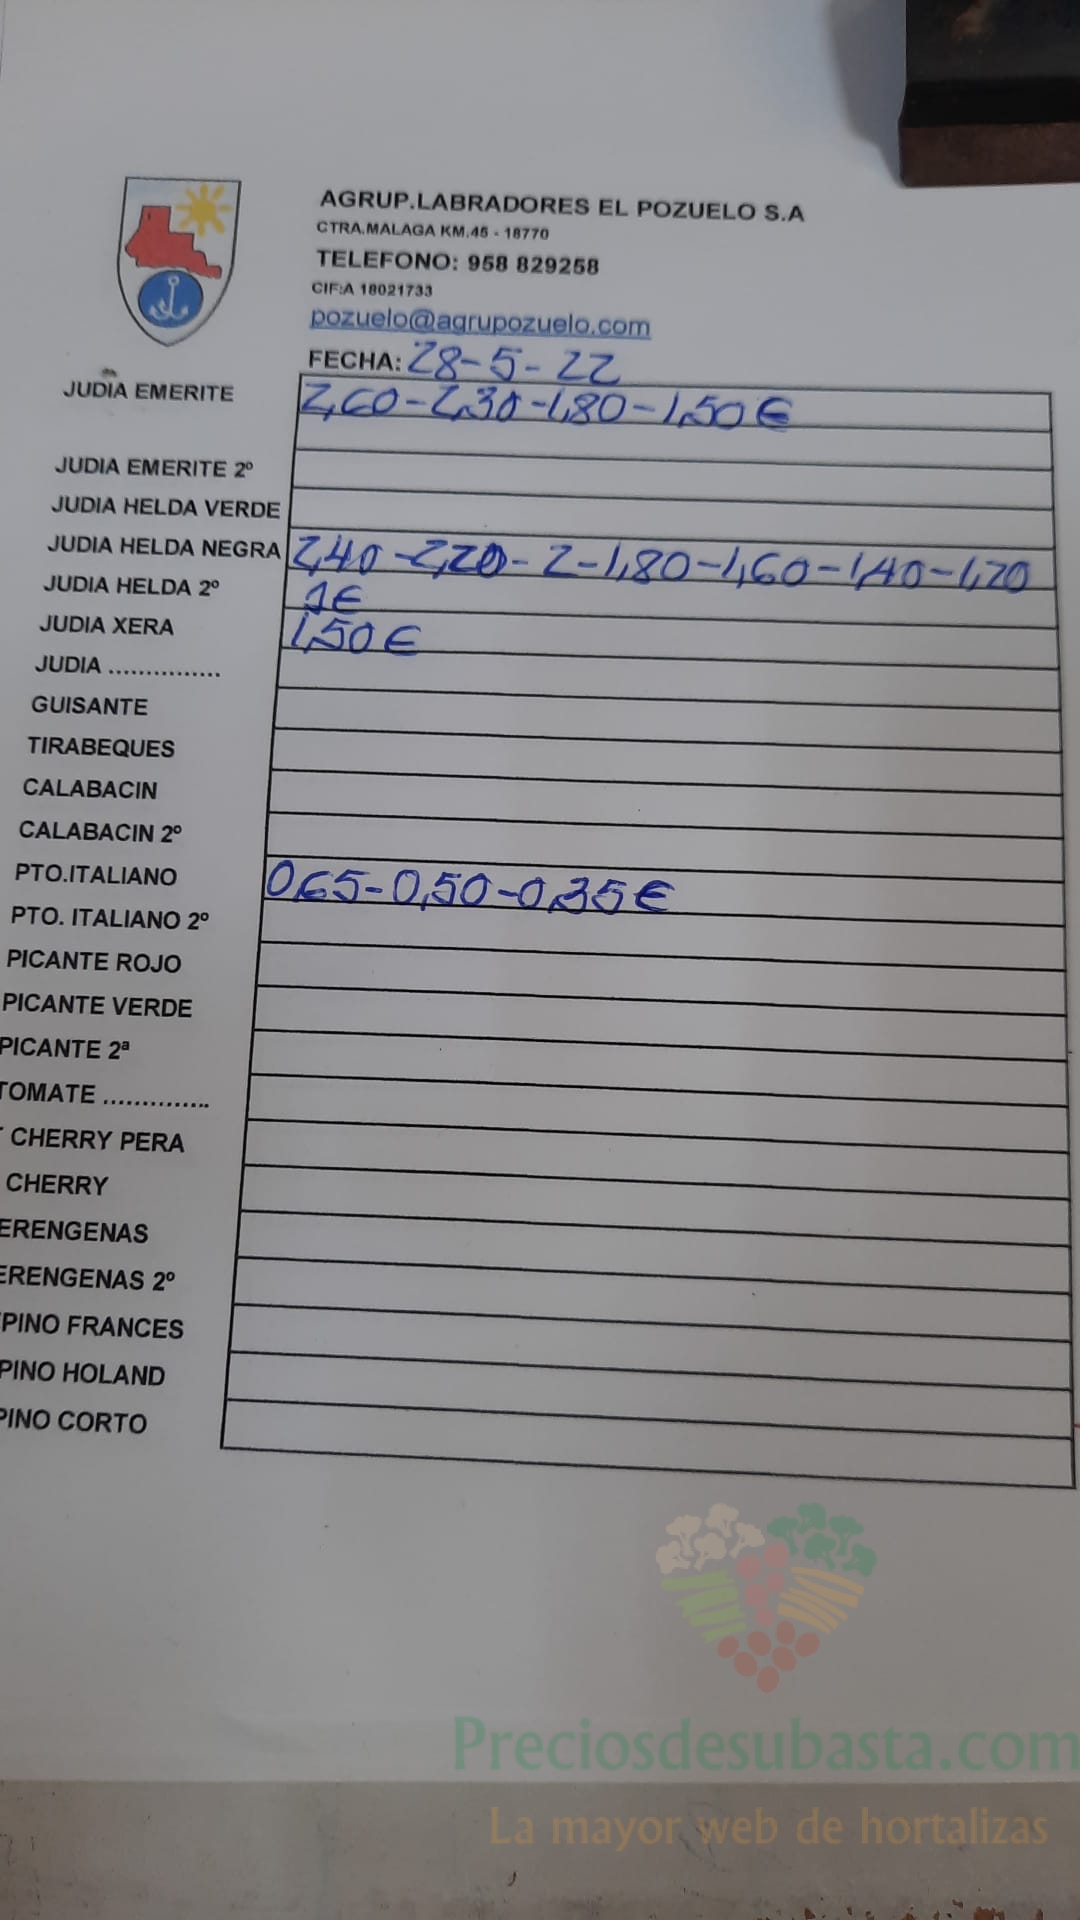 AGRUP.LABRADORES EL POZUELO S.A
CTRA.MALAGA KM.45 - 18770
TELEFONO: 958 829258
CIF:A 18021733
pozuelo@agrupozuelo.com
FECHA: 28-5-22
JUDIA EMERITE 2,60-2,30-1,80-1,50€
JUDIA EMERITE 2º
JUDIA HELDA VERDE
JUDIA HELDA NEGRA 2,40-2,20-2-1,80-1,60-1,40-1,20
JUDIA HELDA 2º 1€
JUDIA XERA 1,50€
JUDIA ...............
GUISANTE
TIRABEQUES
CALABACIN
CALABACIN 2º
PTO.ITALIANO 0,65-0,50-0,35€
PTO. ITALIANO 2º
PICANTE ROJO
PICANTE VERDE
PICANTE 2ª
TOMATE ..............
CHERRY PERA
CHERRY
ERENGENAS
ERENGENAS 2º
PINO FRANCES
PINO HOLAND
PINO CORTO
Preciosdesubasta.com
La mayor web de hortalizas